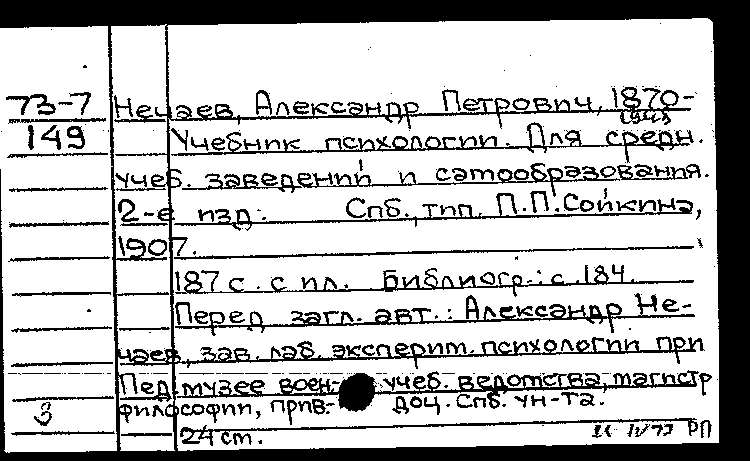 73-7 Нечаев, Александр Петрович, 1870-
1948
149 Учебник психологии. Для средн.
учеб. заведений и самообразования.
2-е изд. Спб., тип. П.П.Сойкина,
1907.
187 с. с ил. Библиогр.: с. 184.
Перед загл. авт.: Александр Не-
чаев, зав. лаб. эксперим. психологии при
Пед. музее воен.- учеб. ведомства, магистр
3 философии, прив.- доц. Спб. ун-та.
24 см. РП